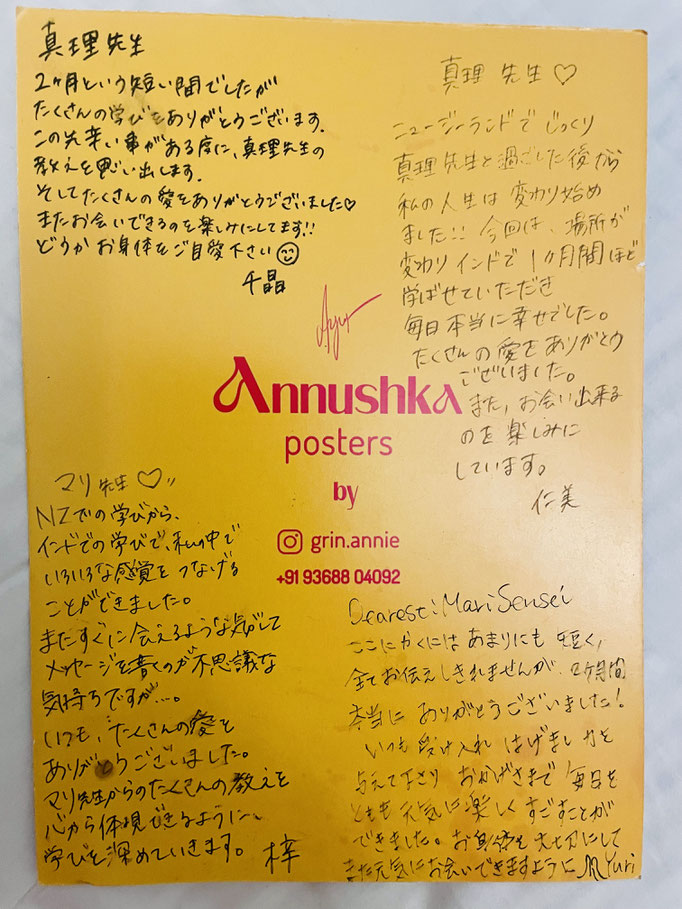 真理先生
2ヶ月という短い間でしたが
たくさんの学びをありがとうございます.
この先辛い事がある度に、真理先生の
教えを思い出します.
そしてたくさんの愛をありがとうございました♡
またお会いできるのを楽しみにしてます!!
どうか お身体をご自愛下さい☺
千晶
真理 先生♡
ニュージーランドで じっくり
真理先生と過ごした後から
私の人生は 変わり始め
ました!! 今回は、場所が
変わり インドで 1ヶ月間ほど
学ばせていただき
毎日本当に幸せでした。
たくさんの愛をありがとう
ございました。
また、お会い出来る
のを楽しみに
しています。
仁美
Annushka
posters
by
grin.annie
+91 93688 04092
マリ先生♡
NZでの学びから、
インドでの学びで、私の中で
いろいろな感覚をつなげる
ことができました。
またすぐに会えるような気がして
メッセージを書くのが不思議な
気持ちですが…。
いつも、たくさんの愛を
ありがとうございました。
マリ先生からのたくさんの教えを
心から体現できるように、
学びを深めていきます。 梓
Dearest: Mari Sensei
ここにかくにはあまりにも 短く、
全てお伝えしきれませんが、2ヶ月間
本当に ありがとうございました!
いつも 受け入れ はげまし 力を
与えて下さり おかげさまで 毎日を
とても 元気に楽しく すごすことが
できました。お身体を大切にして
また元気にお会いできますように Yuri